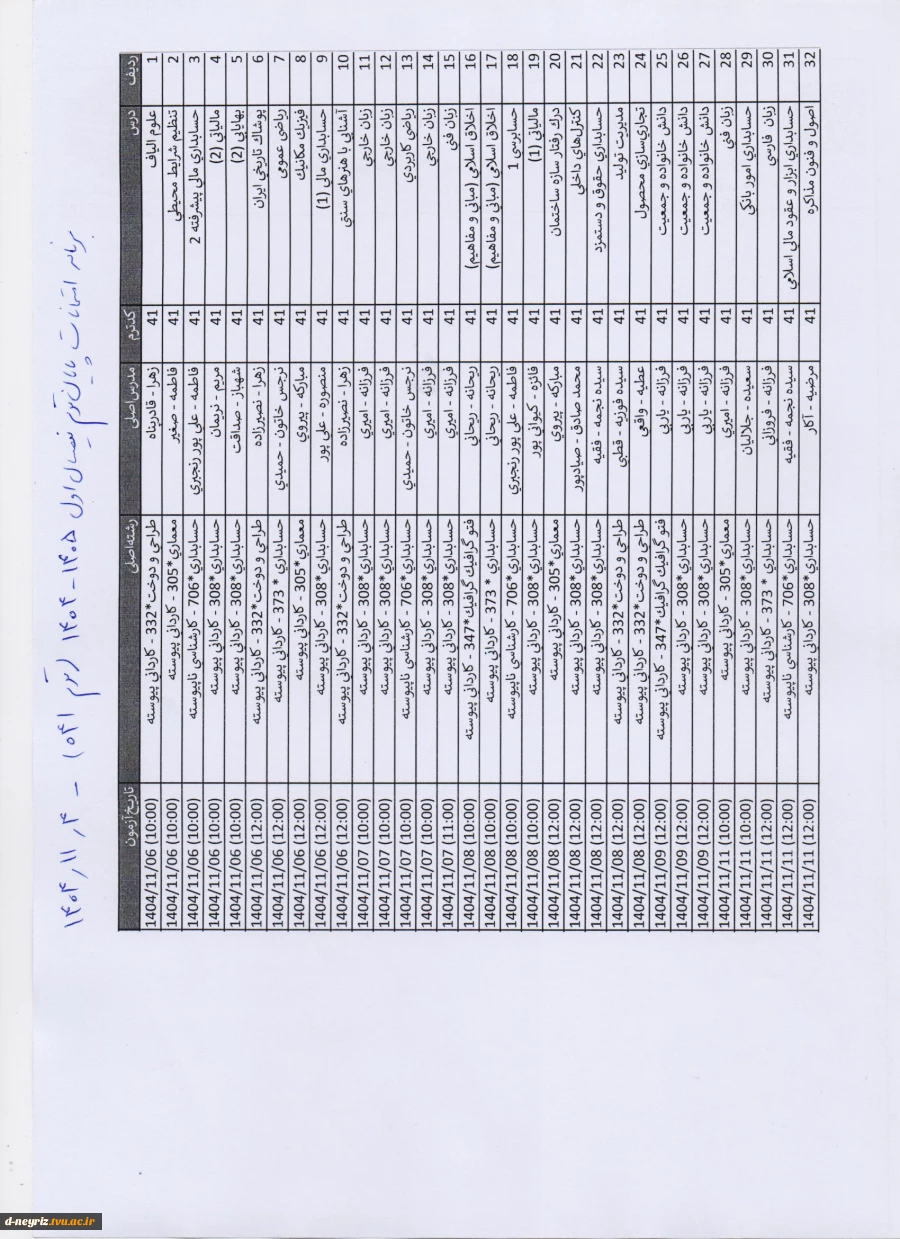 برنامه امتحانات پایان ترم نیمسال اول 1405-1404 (ترم 041) - 1404/11/4
ردیف درس کدترم مدرس اصلی رشته اصلی تاریخ آزمون
1 علوم الیاف 41 زهرا - قادرپناه طراحي و دوخت*332 - کارداني پيوسته 1404/11/06 (10:00)
2 تنظیم شرایط محیطي 41 فاطمه - صغیر معماري*305 - کارداني پيوسته 1404/11/06 (10:00)
3 حسابداري مالي پیشرفته 2 41 فاطمه - علي پور رنجبري حسابداري*706 - کارشناسي ناپيوسته 1404/11/06 (10:00)
4 مالیاتي (2) 41 مریم - نریمان حسابداري*308 - کارداني پيوسته 1404/11/06 (10:00)
5 بهایابی (2) 41 شهناز - صداقت حسابداري*308 - کارداني پيوسته 1404/11/06 (10:00)
6 پوشاك تاریخی ایران 41 زهرا - نصیرزاده طراحي و دوخت*332 - کارداني پيوسته 1404/11/06 (12:00)
7 ریاضی عمومی 41 نرجس خاتون - حمیدي حسابداري * 373 - کارداني پيوسته 1404/11/06 (12:00)
8 فیزیك مکانیك 41 مبارکه - پیروي معماري*305 - کارداني پيوسته 1404/11/06 (12:00)
9 حسابداري مالي (1) 41 منصوره - علی پور حسابداري*308 - کارداني پيوسته 1404/11/06 (12:00)
10 آشنایي با هنرهاي سنتي 41 زهرا - نصیرزاده طراحي و دوخت*332 - کارداني پيوسته 1404/11/06 (12:00)
11 زبان خارجی 41 فرزانه - امیري حسابداري*308 - کارداني پيوسته 1404/11/07 (10:00)
12 زبان خارجی 41 فرزانه - امیري حسابداري*308 - کارداني پيوسته 1404/11/07 (10:00)
13 ریاضی کاربردي 41 نرجس خاتون - حمیدي حسابداري*706 - کارشناسي ناپيوسته 1404/11/07 (10:00)
14 زبان خارجی 41 فرزانه - امیري حسابداري*308 - کارداني پيوسته 1404/11/07 (10:00)
15 زبان فنی 41 فرزانه - امیري حسابداري*308 - کارداني پيوسته 1404/11/07 (11:00)
16 اخلاق اسلامی (مبانی و مفاهیم) 41 ریحانه - ریحانی فتو گرافیك گرافیك*347 - کارداني پيوسته 1404/11/08 (10:00)
17 اخلاق اسلامی (مبانی و مفاهیم) 41 ریحانه - ریحانی حسابداري * 373 - کارداني پيوسته 1404/11/08 (10:00)
18 حسابرسی 1 41 فاطمه - علي پور رنجبري حسابداري*706 - کارشناسي ناپيوسته 1404/11/08 (10:00)
19 مالیاتي (1) 41 فائزه - کیوانی پور حسابداري*308 - کارداني پيوسته 1404/11/08 (10:00)
20 درك رفتار سازه ساختمان 41 مبارکه - پیروي معماري*305 - کارداني پيوسته 1404/11/08 (12:00)
21 کنترل‌هاي داخلي 41 محمد صادق - صیادپور حسابداري*308 - کارداني پيوسته 1404/11/08 (12:00)
22 حسابداري حقوق و دستمزد 41 سیده نجمه - فقیه حسابداري*308 - کارداني پيوسته 1404/11/08 (12:00)
23 مدیریت تولید 41 سیده فوزیه - قطبي طراحي و دوخت*332 - کارداني پيوسته 1404/11/08 (12:00)
24 تجاري‌سازي محصول 41 عطیه - واقعي طراحي و دوخت*332 - کارداني پيوسته 1404/11/08 (12:00)
25 دانش خانواده و جمعیت 41 فرزانه - یاربي فتو گرافیك گرافیك*347 - کارداني پيوسته 1404/11/09 (12:00)
26 دانش خانواده و جمعیت 41 فرزانه - یاربي حسابداري*308 - کارداني پيوسته 1404/11/09 (12:00)
27 دانش خانواده و جمعیت 41 فرزانه - یاربي حسابداري*308 - کارداني پيوسته 1404/11/09 (12:00)
28 زبان فنی 41 فرزانه - امیري معماري*305 - کارداني پيوسته 1404/11/11 (10:00)
29 حسابداري امور بانکي 41 سعیده - جلالیان حسابداري*308 - کارداني پيوسته 1404/11/11 (10:00)
30 زبان فارسی 41 فرزانه - فروزانی حسابداري * 373 - کارداني پيوسته 1404/11/11 (12:00)
31 حسابداري ابزار و عقود مالی اسلامی 41 سیده نجمه - فقیه حسابداري*706 - کارشناسي ناپيوسته 1404/11/11 (12:00)
32 اصول و فنون مذاکره 41 مرضیه - آکار حسابداري*308 - کارداني پيوسته 1404/11/11 (12:00)
d-neyriz.tvu.ac.ir